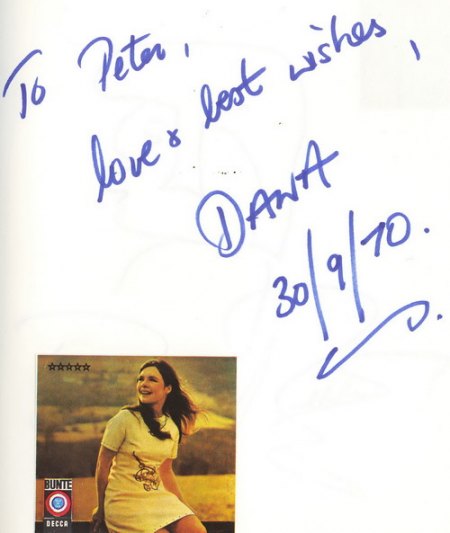 To Peter,
love & best wishes,
DANA
30/9/70.
BUNTE
DECCA